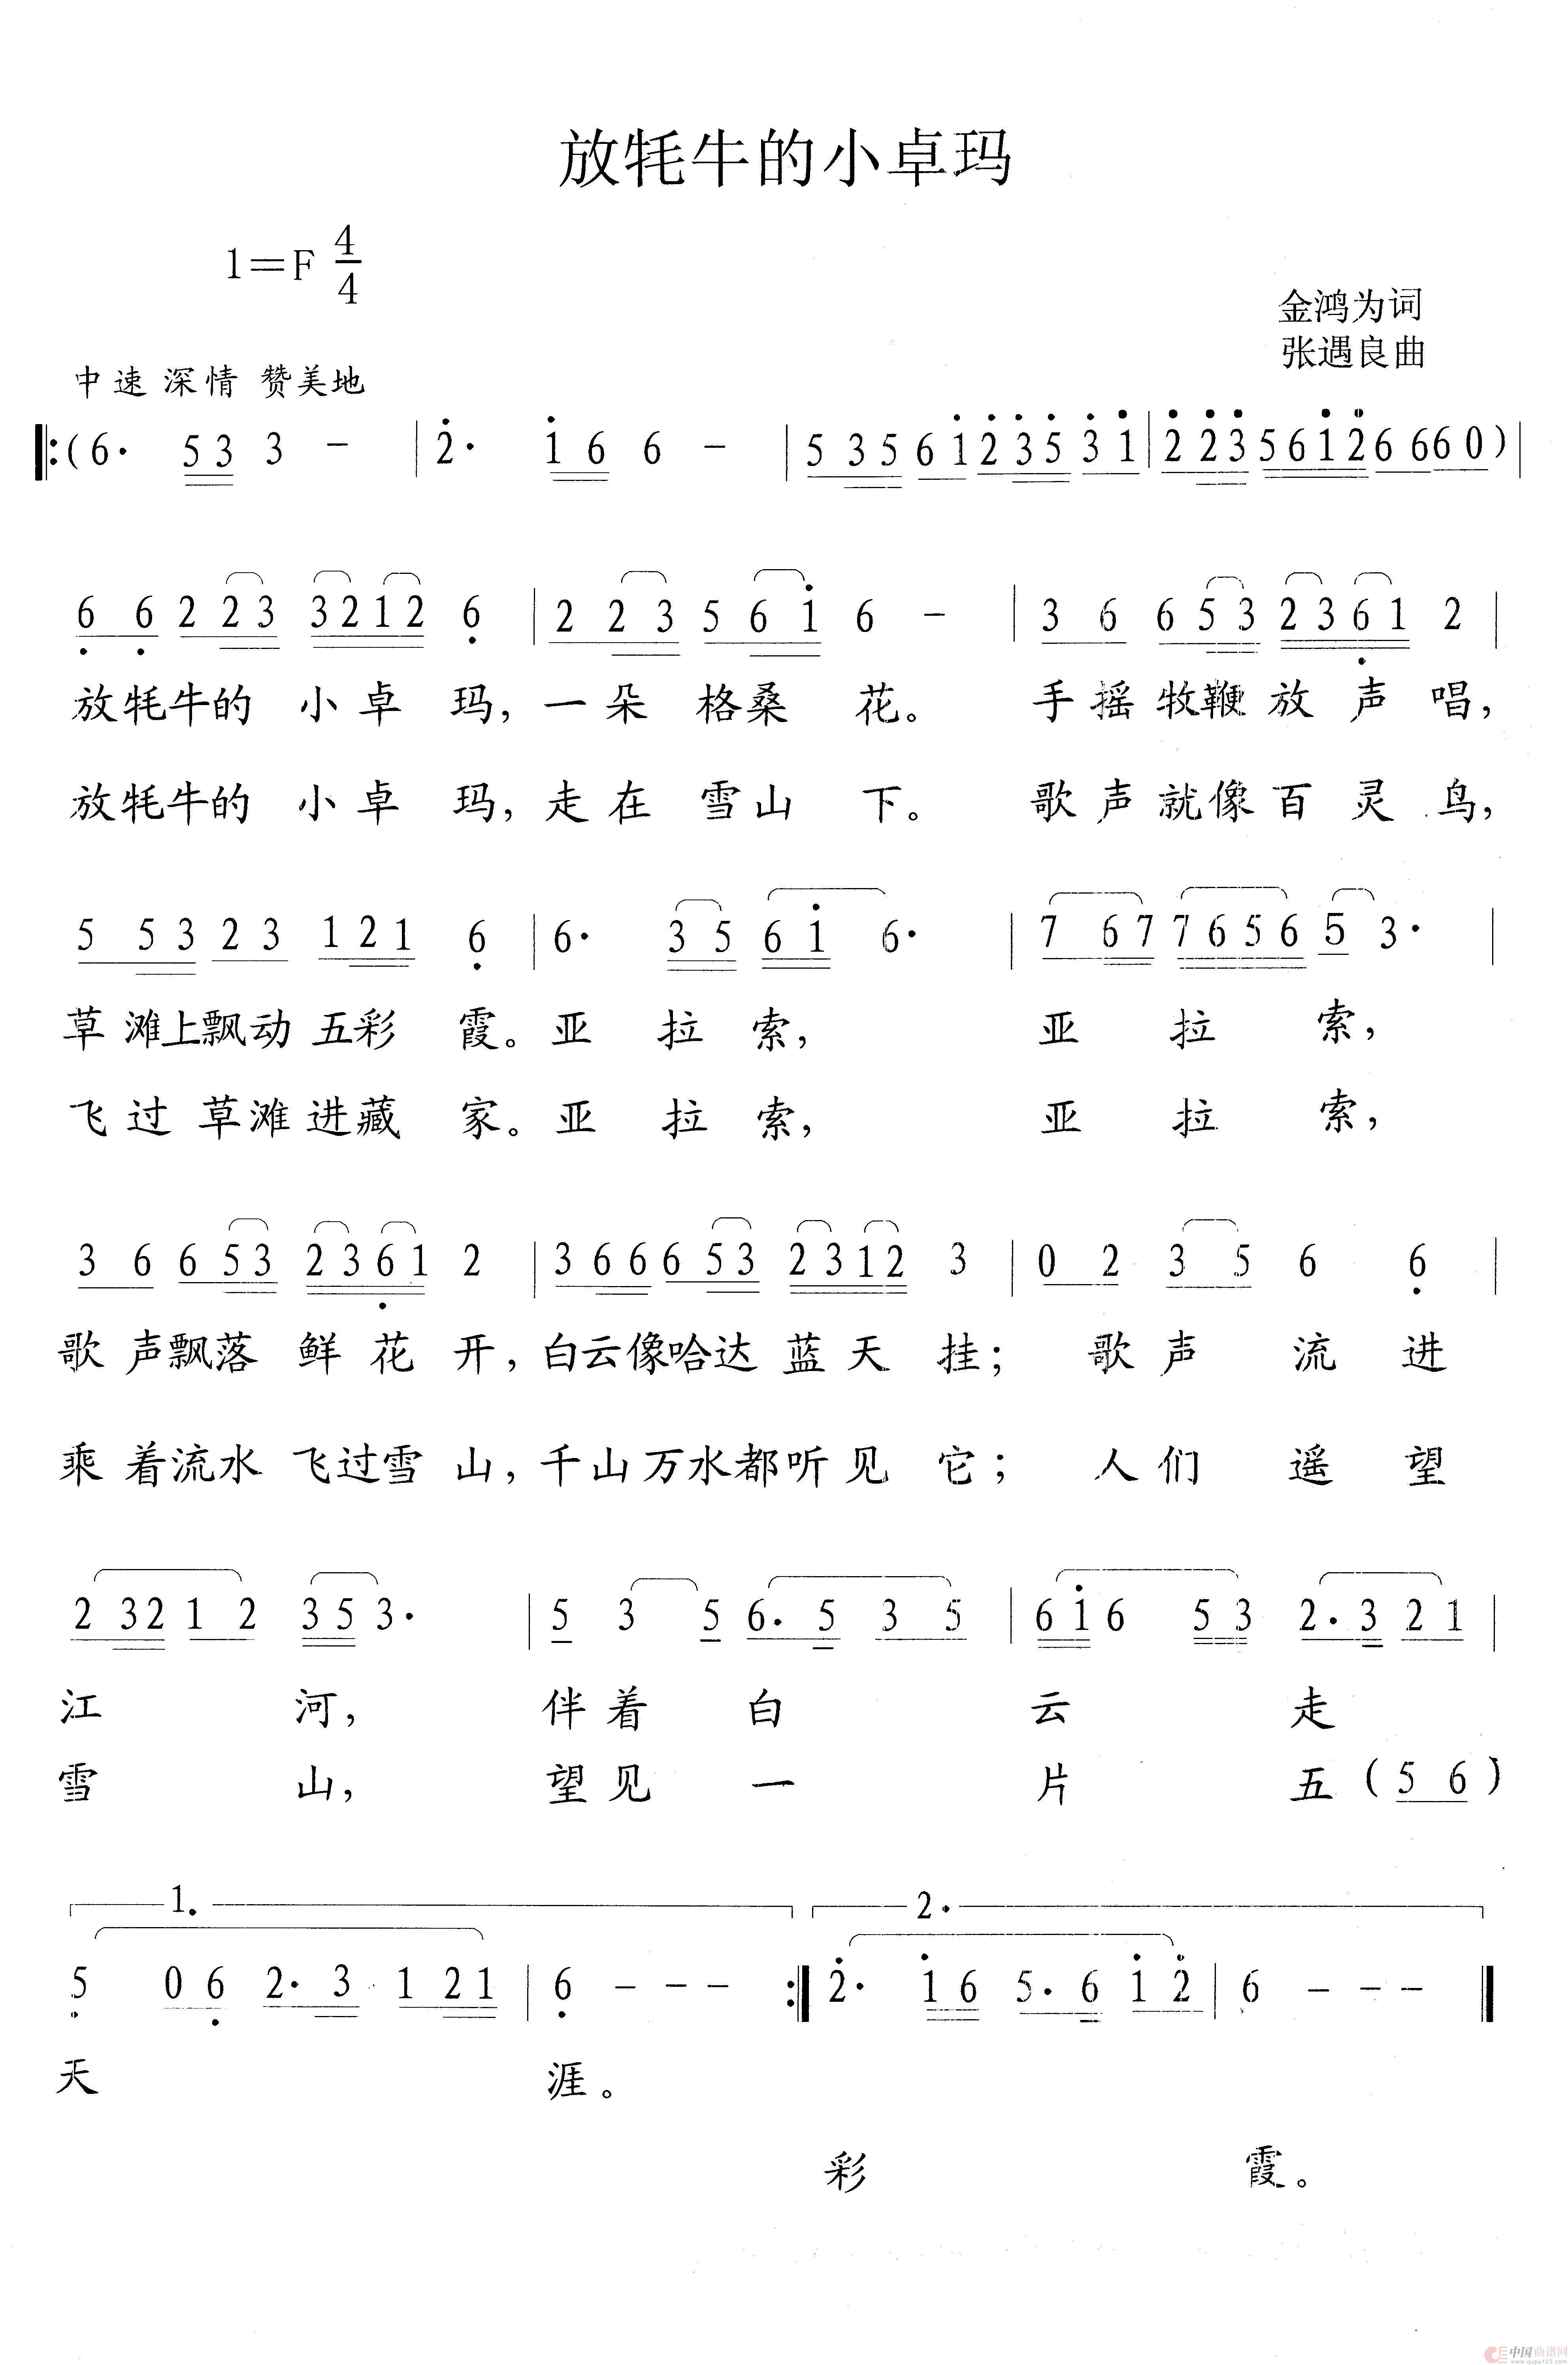 放牦牛的小卓玛
1=F 4/4
金鸿为词
张遇良曲
中速 深情 赞美地
(6· 53 3 - | 2̇· 1̇6 6 - | 5 35 61̇ 2̇3̇5̇ 3̇1̇ | 2̇2̇3̇ 561̇2̇ 66 60) |
6̣ 6̣ 2 23 3212 6̣ | 2 23 5 61̇ 6 - | 3 6 6 53 236̣1 2 |
放牦牛的 小 卓 玛, 一 朵 格桑 花。 手摇 牧鞭 放 声 唱,
放牦牛的 小 卓 玛, 走在 雪山 下。 歌声就像百 灵 鸟,
5 53 23 121 6̣ | 6· 35 61̇ 6· | 7 67 7656 5 3· |
草 滩上飘动 五彩 霞。 亚 拉 索, 亚 拉 索,
飞过 草滩 进藏 家。 亚 拉 索, 亚 拉 索,
3 6 6 53 236̣1 2 | 366 6 53 2312 3 | 0 2 3 5 6 6̣ |
歌 声飘落 鲜 花 开, 白云像哈达 蓝 天 挂; 歌 声 流 进
乘 着流水 飞过雪 山, 千山万水都听 见 它; 人 们 遥 望
2 32 1 2 35 3· | 5 3 5 6· 5 3 5 | 61̇6 53 2·3 21 |
江 河, 伴着 白 云 走
雪 山, 望见 一 片 五 (5 6)
1. 2.
5̣ 0 6̣ 2· 3 1 21 | 6̣ - - - :| 2̇· 1̇6 5· 6 1̇ 2̇ | 6 - - -
天 涯。
彩 霞。
中国曲谱网
www.qupu123.com